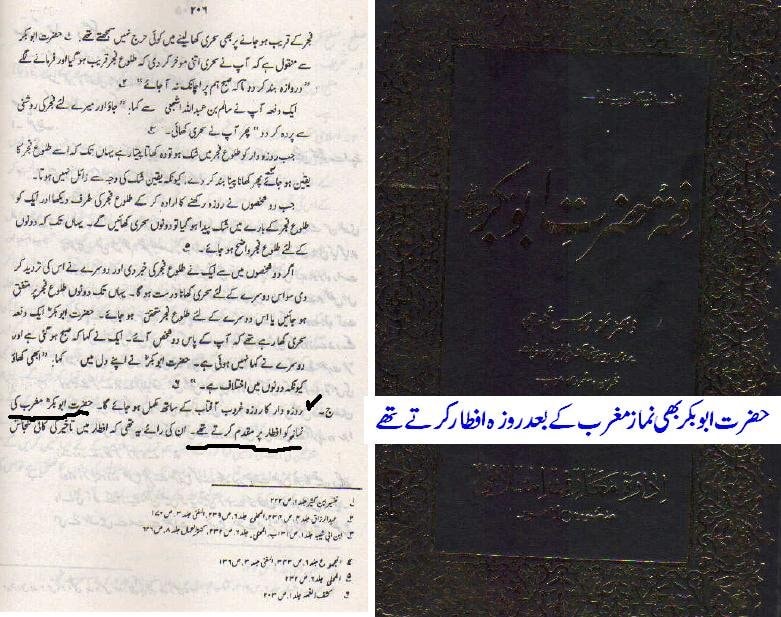 ۲۰۶
فجر کے قریب ہو جانے پر بھی سحری کھا لینے میں کوئی حرج نہیں سمجھتے تھے۔ حضرت ابوبکر
سے منقول ہے کہ آپ نے سحری اتنی موخر کر دی کہ طلوع فجر قریب ہو گیا اور فرمانے لگے
"دروازہ بند کر دو تاکہ صبح ہم پر اچانک نہ آ جائے"
ایک دفعہ آپ نے سالم بن عبداللہ اشجعی سے کہا: "جاؤ اور میرے لئے فجر کی روشنی
سے پردہ کر دو" پھر آپ نے سحری کھائی۔
جب روزہ دار کو طلوع فجر میں شک ہو تو وہ کھاتا پیتا رہے یہاں تک کہ اسے طلوع فجر کا
یقین ہو جائے پھر کھانا پینا بند کر دے، کیونکہ یقین شک کی وجہ سے زائل نہیں ہوتا۔
جب دو شخصوں نے روزہ رکھنے کا ارادہ کر کے طلوع فجر کی طرف دیکھا اور ایک کو
طلوع فجر کے بارے میں شک پیدا ہو گیا تو دونوں سحری کھائیں گے۔ یہاں تک کہ دونوں
کے لئے طلوع فجر واضح ہو جائے۔
اگر دو شخصوں میں سے ایک نے طلوع فجر کی خبر دی اور دوسرے نے اس کی تردید کر
دی سو اس دوسرے کے لئے سحری کھانا درست ہو گا۔ یہاں تک دونوں طلوع فجر پر متفق
ہو جائیں یا اس دوسرے کے لئے طلوع فجر متحقق ہو جائے۔ حضرت ابوبکرؓ ایک دفعہ
سحری کھا رہے تھے کہ آپ کے پاس دو شخص آئے۔ ایک نے کہا کہ صبح ہو گئی ہے اور
دوسرے نے کہا نہیں ہوئی ہے۔ حضرت ابوبکرؓ نے اپنے دل میں کہا: "ابھی کھاؤ
کیونکہ دونوں میں اختلاف ہے۔"
ج۔ روزہ دار کا روزہ غروب آفتاب کے ساتھ مکمل ہو جائے گا۔ حضرت ابوبکرؓ مغرب کی
نماز کو افطار پر مقدم کرتے تھے۔ ان کی رائے یہ تھی کہ افطار میں تاخیر کی کافی گنجائش
۱ تفسیر ابن کثیر جلد ۱، ص ۲۲۲
۲ عبدالرزاق جلد ۴، ص ۲۳۴، المحلی جلد ۶، ص ۲۳۹، المغنی جلد ۳، ص ۱۷۶
۴ المجموع جلد ۶، ص ۳۳۳، المغنی جلد ۳، ص ۱۳۶
۵ المحلی جلد ۶، ص ۲۳۲
۶ کشف الغمہ جلد ۱، ص ۲۰۳
فقہ حضرت ابوبکرؓ
حضرت ابوبکر بھی نماز مغرب کے بعد روزہ افطار کرتے تھے
ادارہ معارف اسلامی